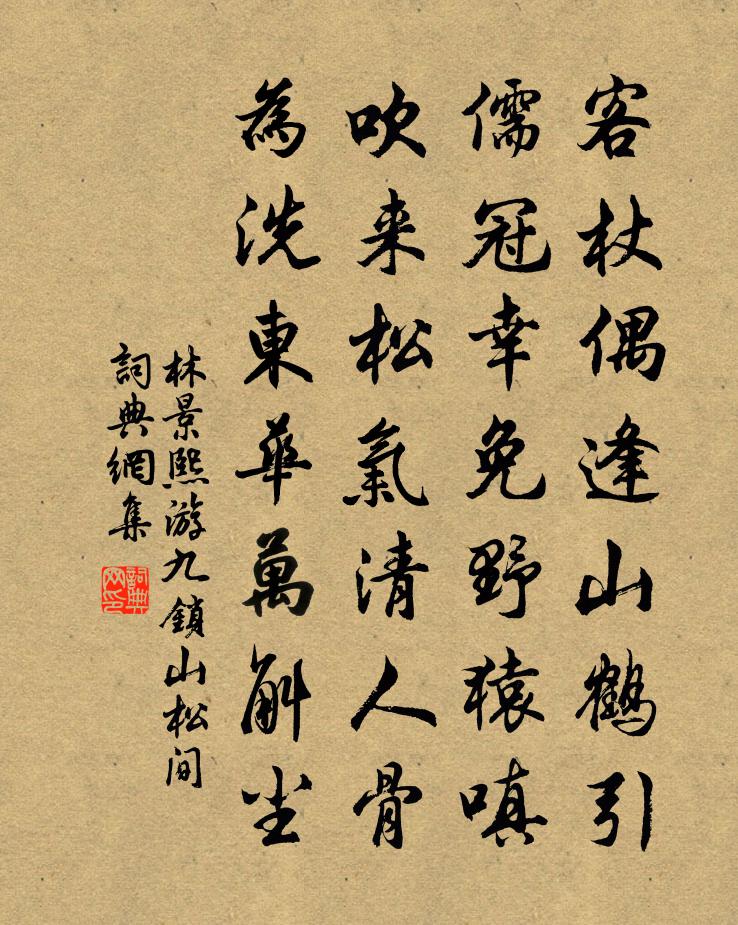 客杖偶逢山鹤引
儒冠幸免野猿嗔
吹来松氣清人骨
為洗東華萬斛尘
林景熙游九鎖山松间
詞典網集
詞典网印